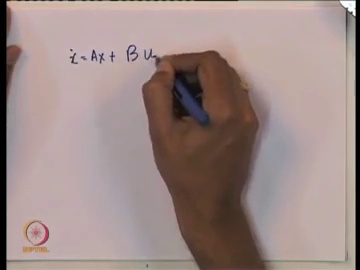 ẋ = Ax + B u
NPTEL